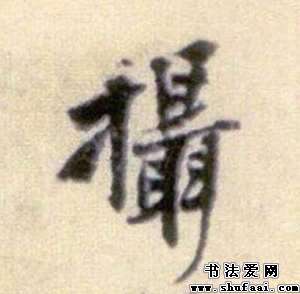 攝
书法爱网
www.shufaai.com